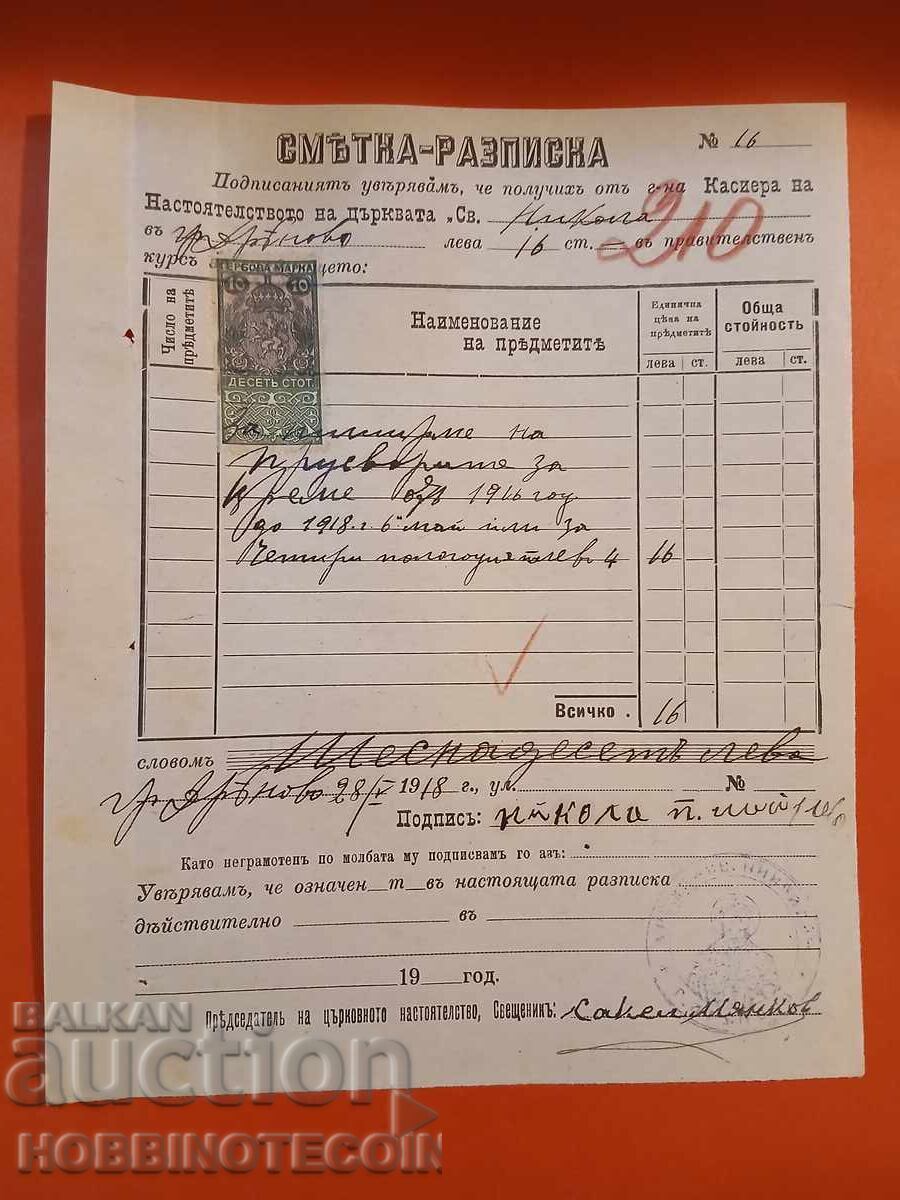 СМѢТКА-РАЗПИСКА
№ 16
Подписаниятъ увѣрявамъ, че получихъ отъ г-на Касиера на
Настоятелството на църквата „Св. Никола
210
въ гр. Дрѣново лева 16 ст. — въ правителственъ
курсъ
ГЕРБОВА МАРКА
10 10
ДЕСЕТЬ СТОТ.
Число на предметитѣ
Наименование на прѣдметитѣ
Единична цѣна на прѣдметитѣ
Обща стойность
лева ст. лева ст.
за на
за
време отъ 1916 год
до 1918 г. 6 май или за
Четири по лев 4 16
Всичко . 16
словомъ Шеснадесетъ лева
гр. Дрѣново 28/V 1918 г., ул. №
Подпись: Никола П.
Като неграмотенъ по молбата му подписвамъ го азъ:
Увѣрявамъ, че означен т въ настоящата разписка
дѣйствително въ
19 год.
Прѣдседатель на църковното настоятелство, Свещеникъ:
BALKAN
auction
HOBBINOTECOIN